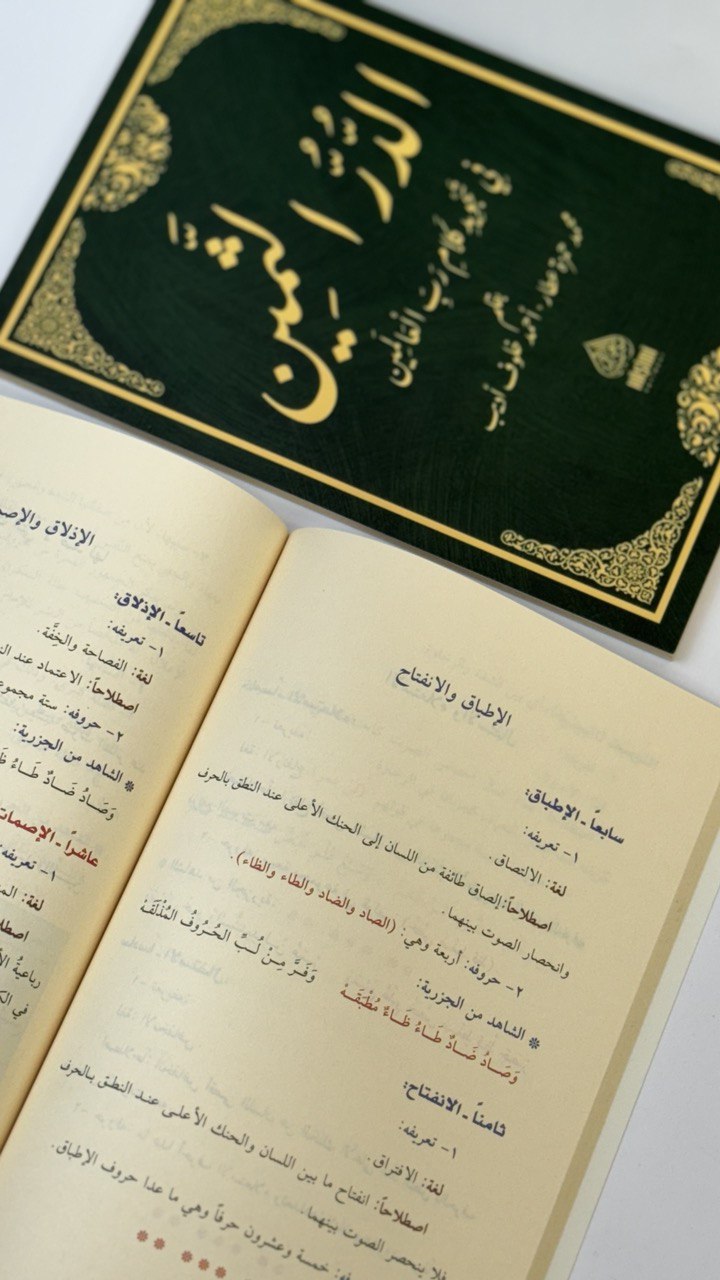 الدُّرُّ الثَّمِين
فِي تَجْوِيدِ كَلَامِ رَبِّ الْعَالَمِين
بقلم
محمد حمزة عطار. أحمد خلوف أديب
الإطباق والانفتاح
سابعاً - الإطباق:
١- تعريفه:
لغة: الالتصاق.
اصطلاحاً: إلصاق طائفة من اللسان إلى الحنك الأعلى عند النطق بالحرف
وانحصار الصوت بينهما.
٢- حروفه: أربعة وهي: (الصاد والضاد والطاء والظاء).
❊ الشاهد من الجزرية:
وَصَـادُ ضَـادٌ طَـاءُ ظَـاءٌ مُطْبَقَـهْ وَفَـرَّ مِـنْ لُـبِّ الحُـرُوفُ المُذْلَقَـهْ
ثامناً - الانفتاح:
١- تعريفه:
لغة: الافتراق.
اصطلاحاً: انفتاح ما بين اللسان والحنك الأعلى عند النطق بالحرف
فلا ينحصر الصوت بينهما.
خمسة وعشرون حرفاً وهي ما عدا حروف الإطباق.
الإذلاق
تاسعاً - الإذلاق:
١- تعريفه:
لغة: الفصاحة والخِفَّة.
اصطلاحاً: الاعتماد عند
٢- حروفه: ستة
❊ الشاهد من الجزرية:
وَصَـادُ ضَـادٌ طَـاءُ
عاشراً - الإصمات
١- تعريفه:
لغة:
رباعيةُ
في